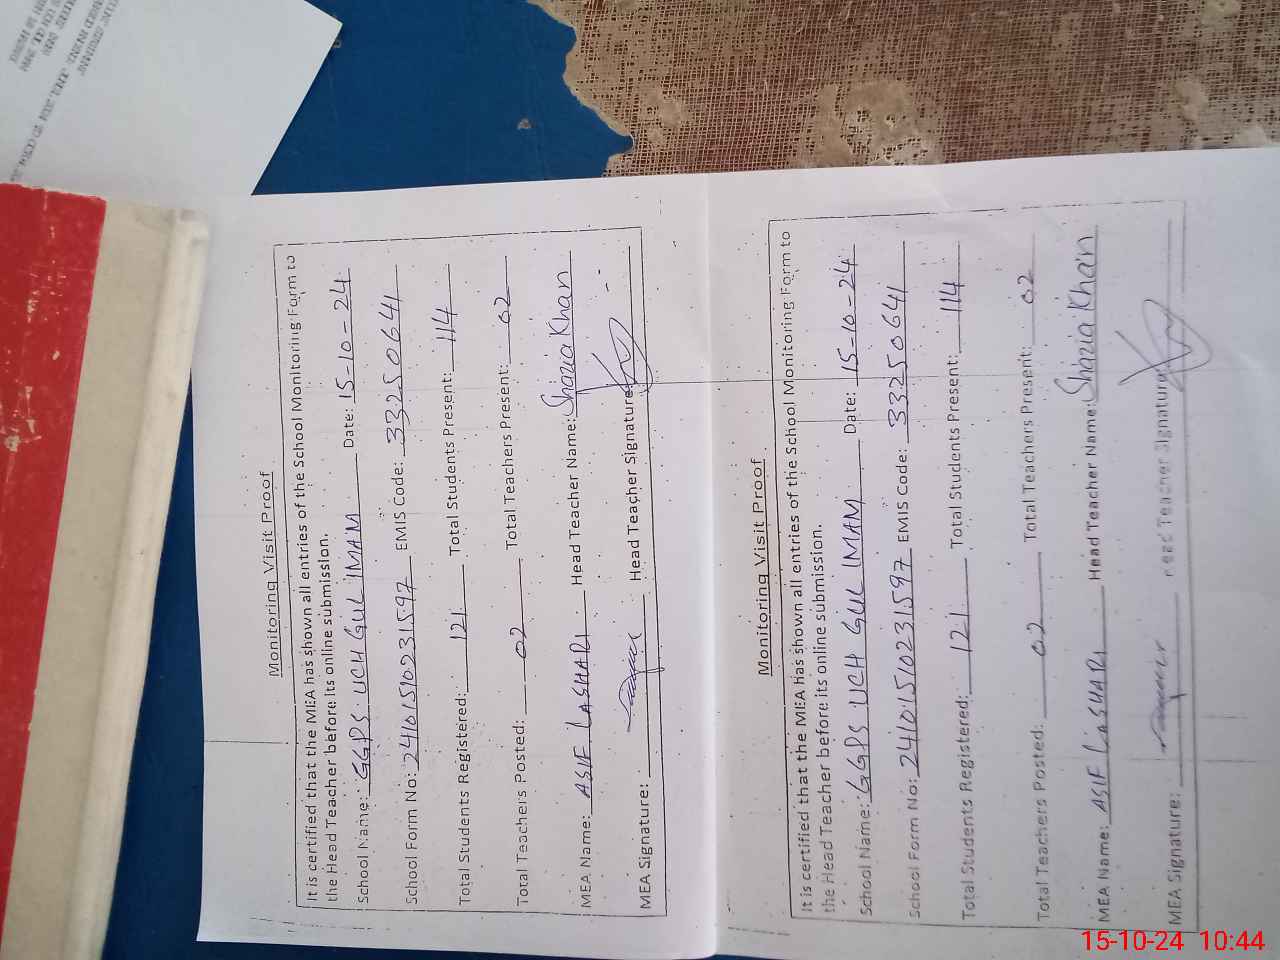 Monitoring Visit Proof
It is certified that the MEA has shown all entries of the School Monitoring Form to
the Head Teacher before its online submission.
School Name: GGPS UCH GUL IMAM Date: 15-10-24
School Form No: 2410151023 1597 EMIS Code: 33250641
Total Students Registered: 121 Total Students Present: 114
Total Teachers Posted: 02 Total Teachers Present: 02
MEA Name: ASIF LASHARI Head Teacher Name: Shazia Khan
MEA Signature: Head Teacher Signature:
Monitoring Visit Proof
It is certified that the MEA has shown all entries of the School Monitoring Form to
the Head Teacher before its online submission.
School Name: GGPS UCH GUL IMAM Date: 15-10-24
School Form No: 24101510231597 EMIS Code: 33250641
Total Students Registered: 121 Total Students Present: 114
Total Teachers Posted: 02 Total Teachers Present: 02
MEA Name: ASIF LASHARI Head Teacher Name: Shazia Khan
MEA Signature: Head Teacher Signature:
15-10-24 10:44